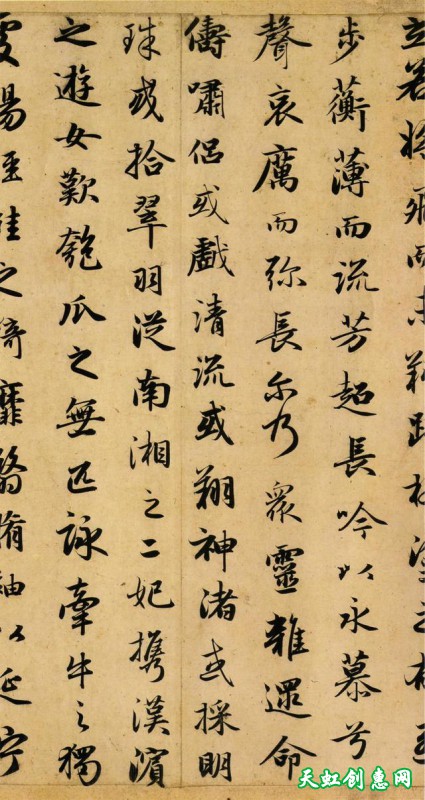 立若将飛而未翔踐椒塗之郁烈
步蘅薄而流芳超長吟以永慕兮
聲哀厲而弥長尔乃衆靈雜遝命
儔嘯侣或戲清流或翔神渚或採明
珠或拾翠羽從南湘之二妃携漢濱
之遊女歎匏瓜之無匹詠牽牛之獨
處揚輕袿之綺靡翳脩袖以延佇
天虹创惠网